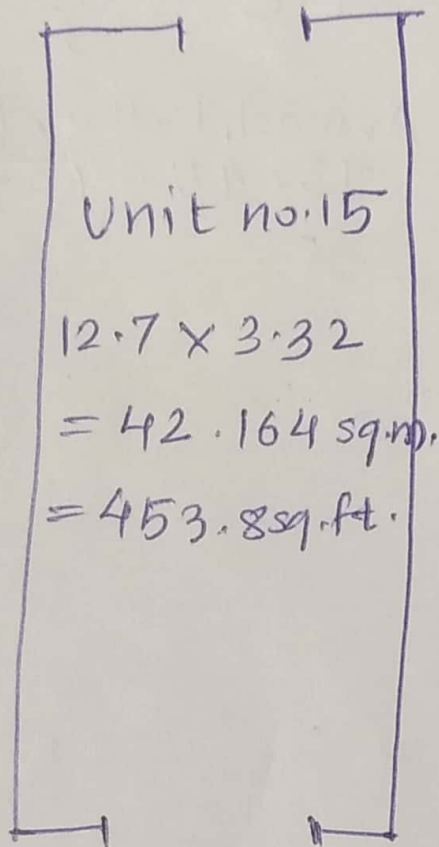 Unit no.15
12.7 x 3.32
= 42.164 sq.m.
= 453.8sq.ft.